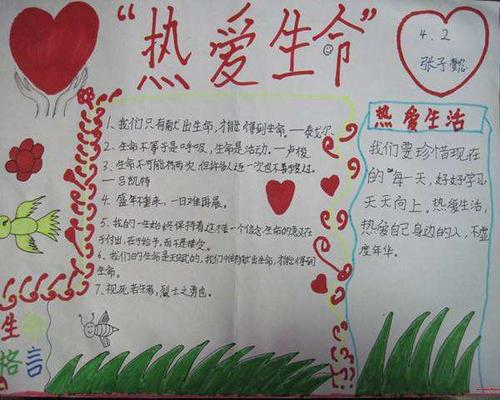 “热爱生命”
4.2
张子懿
1、我们只有献出生命,才能得到生命。——泰戈尔
2、生命不等于是呼吸,生命是活动。——卢梭
3、生命不可能有两次,但许多人连一次也不善于度过。
——吕凯特
4、盛年不重来,一日难再晨。
5、我的一生始终保持着这样一个信念生命的意义在
于付出,在于给予,而不是接受。
6、我们的生命是天赋的,我们惟有献出生命,才能得到
生命。
7、视死若生者,烈士之勇也。
热爱生活
我们要珍惜现在
的每一天,好好学习
天天向上。热爱生活,
热爱自己身边的人,不虚
度年华。
生命
格言